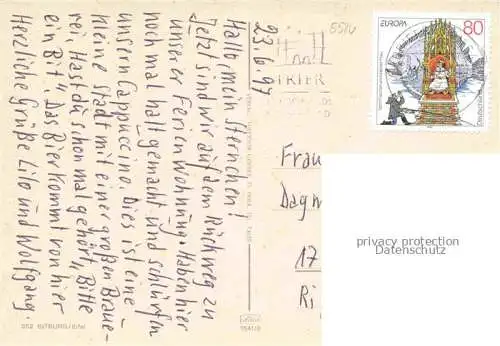 23.6.97
Hallo mein Sternchen!
Jetzt sind wir auf dem Rückweg zu
unserer Ferienwohnung. Haben hier
noch mal halt gemacht und schlürfen
unsern Cappuccino. Dies ist eine
kleine Stadt mit einer großen Braue-
rei. Hast du schon mal gehört, „Bitte
ein Bit". Das Bier kommt von hier
Herzliche Grüße Lilo und Wolfgang.
552 BITBURG/Eifel
1541/8
5514
TRIER
EUROPA
80
Frau
Dagm
17
Ri
privacy protection
Datenschutz